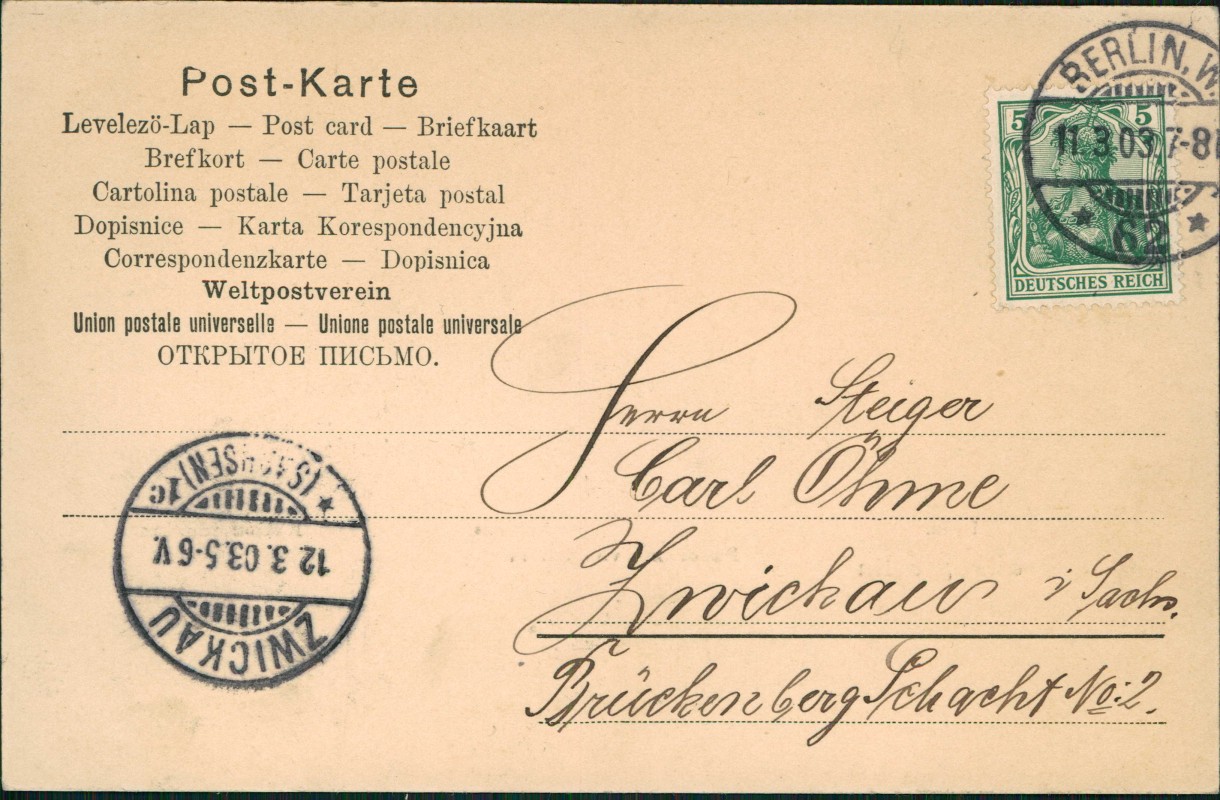 Post-Karte
Levelezö-Lap — Post card — Briefkaart
Brefkort — Carte postale
Cartolina postale — Tarjeta postal
Dopisnice — Karta Korespondencyjna
Correspondenzkarte — Dopisnica
Weltpostverein
Union postale universelle — Unione postale universale
ОТКРЫТОЕ ПИСЬМО.
BERLIN, W.
11.3.03 7-8
62
5 5
DEUTSCHES REICH
Herrn Steiger
Carl Öhme
Zwickau i Sachs.
Brückenberg Schacht No: 2.
ZWICKAU
12.3.03.5-6V.
(SACHSEN) 1c